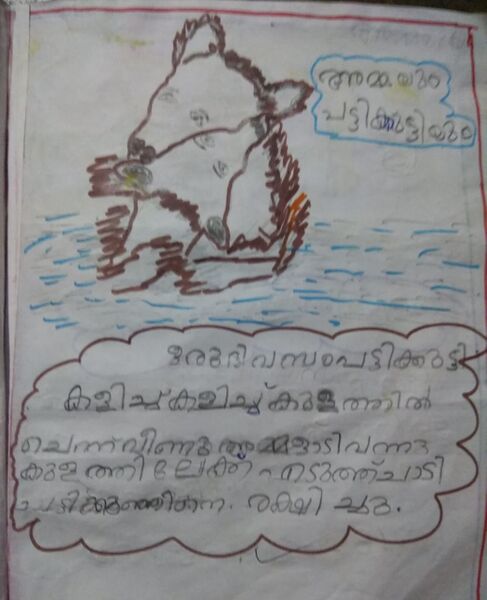 അമ്മയും
പട്ടിക്കുട്ടിയും
ഒരുദിവസംപട്ടിക്കുട്ടി
കളിച്ച്കളിച്ച്കുളത്തിൽ
ചെന്ന്വീണുഅമ്മഓടിവന്ന്
കുളത്തിലേക്ക് എടുത്ത്ചാടി
പട്ടിക്കുഞ്ഞിനെ. രക്ഷിച്ചു.